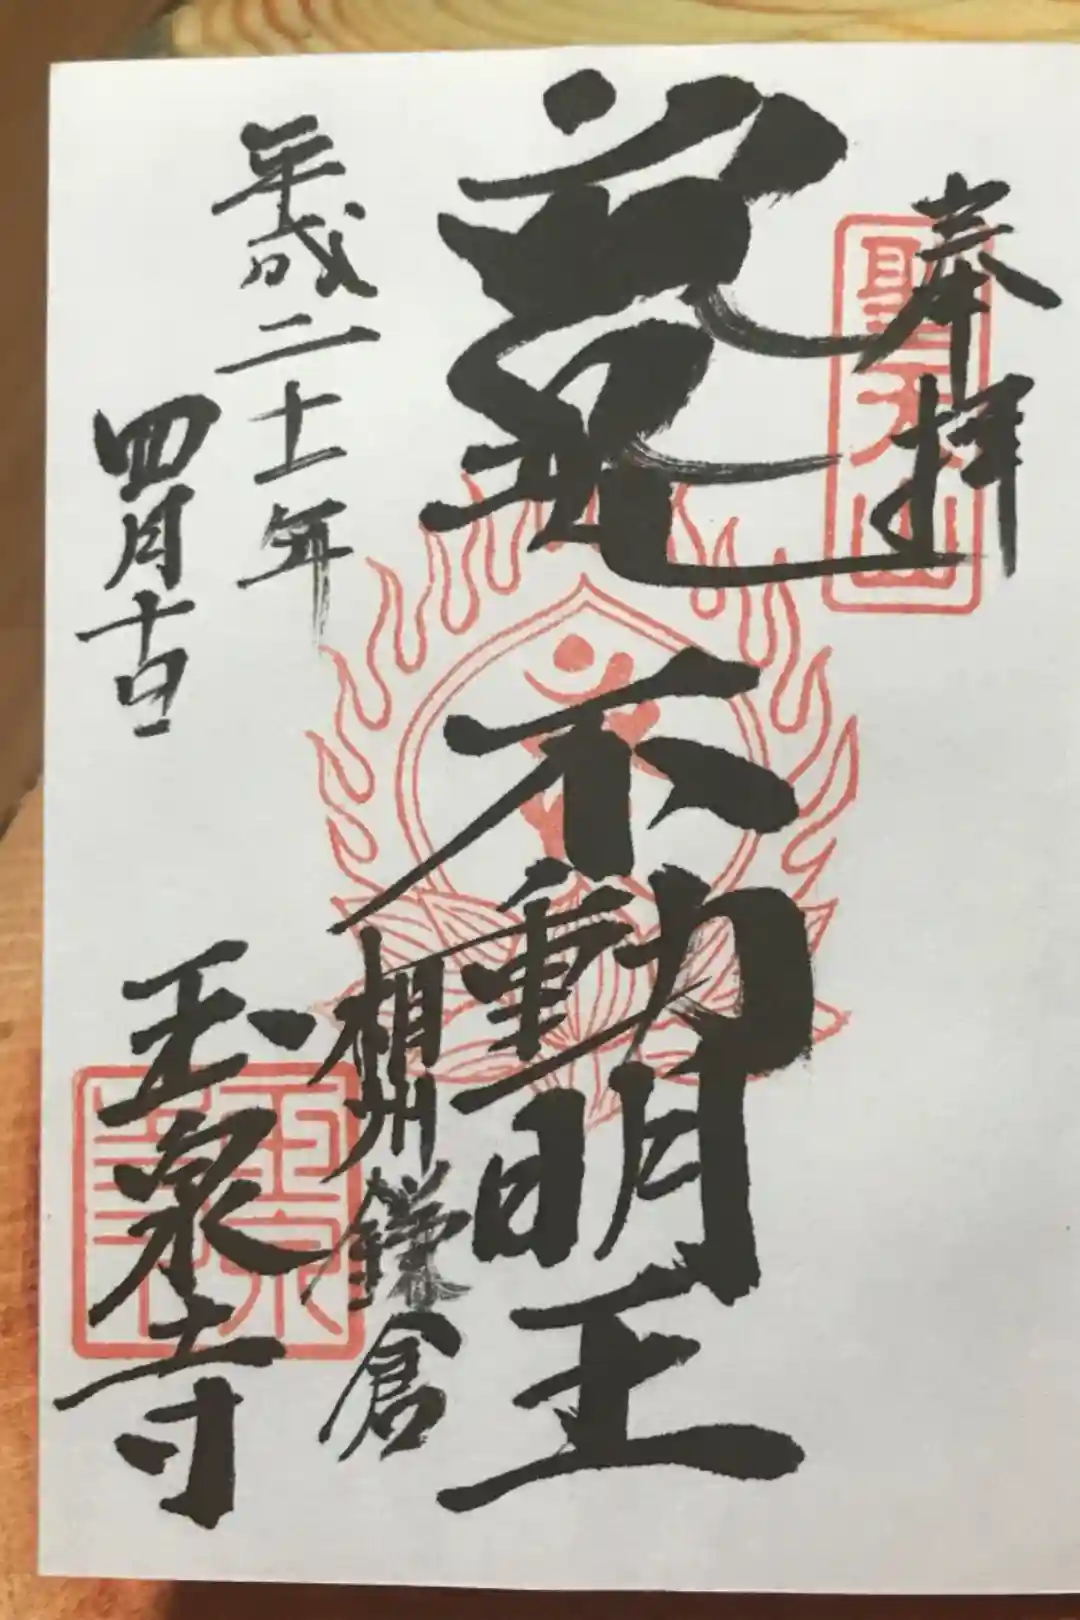 奉拝
聖天山
不動明王
相州鎌倉
平成二十一年
四月十日
玉泉寺